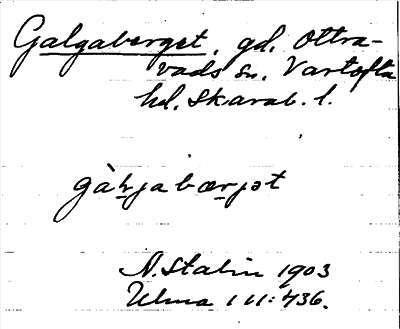 Galgaberget, gd. Ottra-
vads sn. Vartofta
hd. Skarab. l.
N. Stalin 1903
Ulma 111:436.